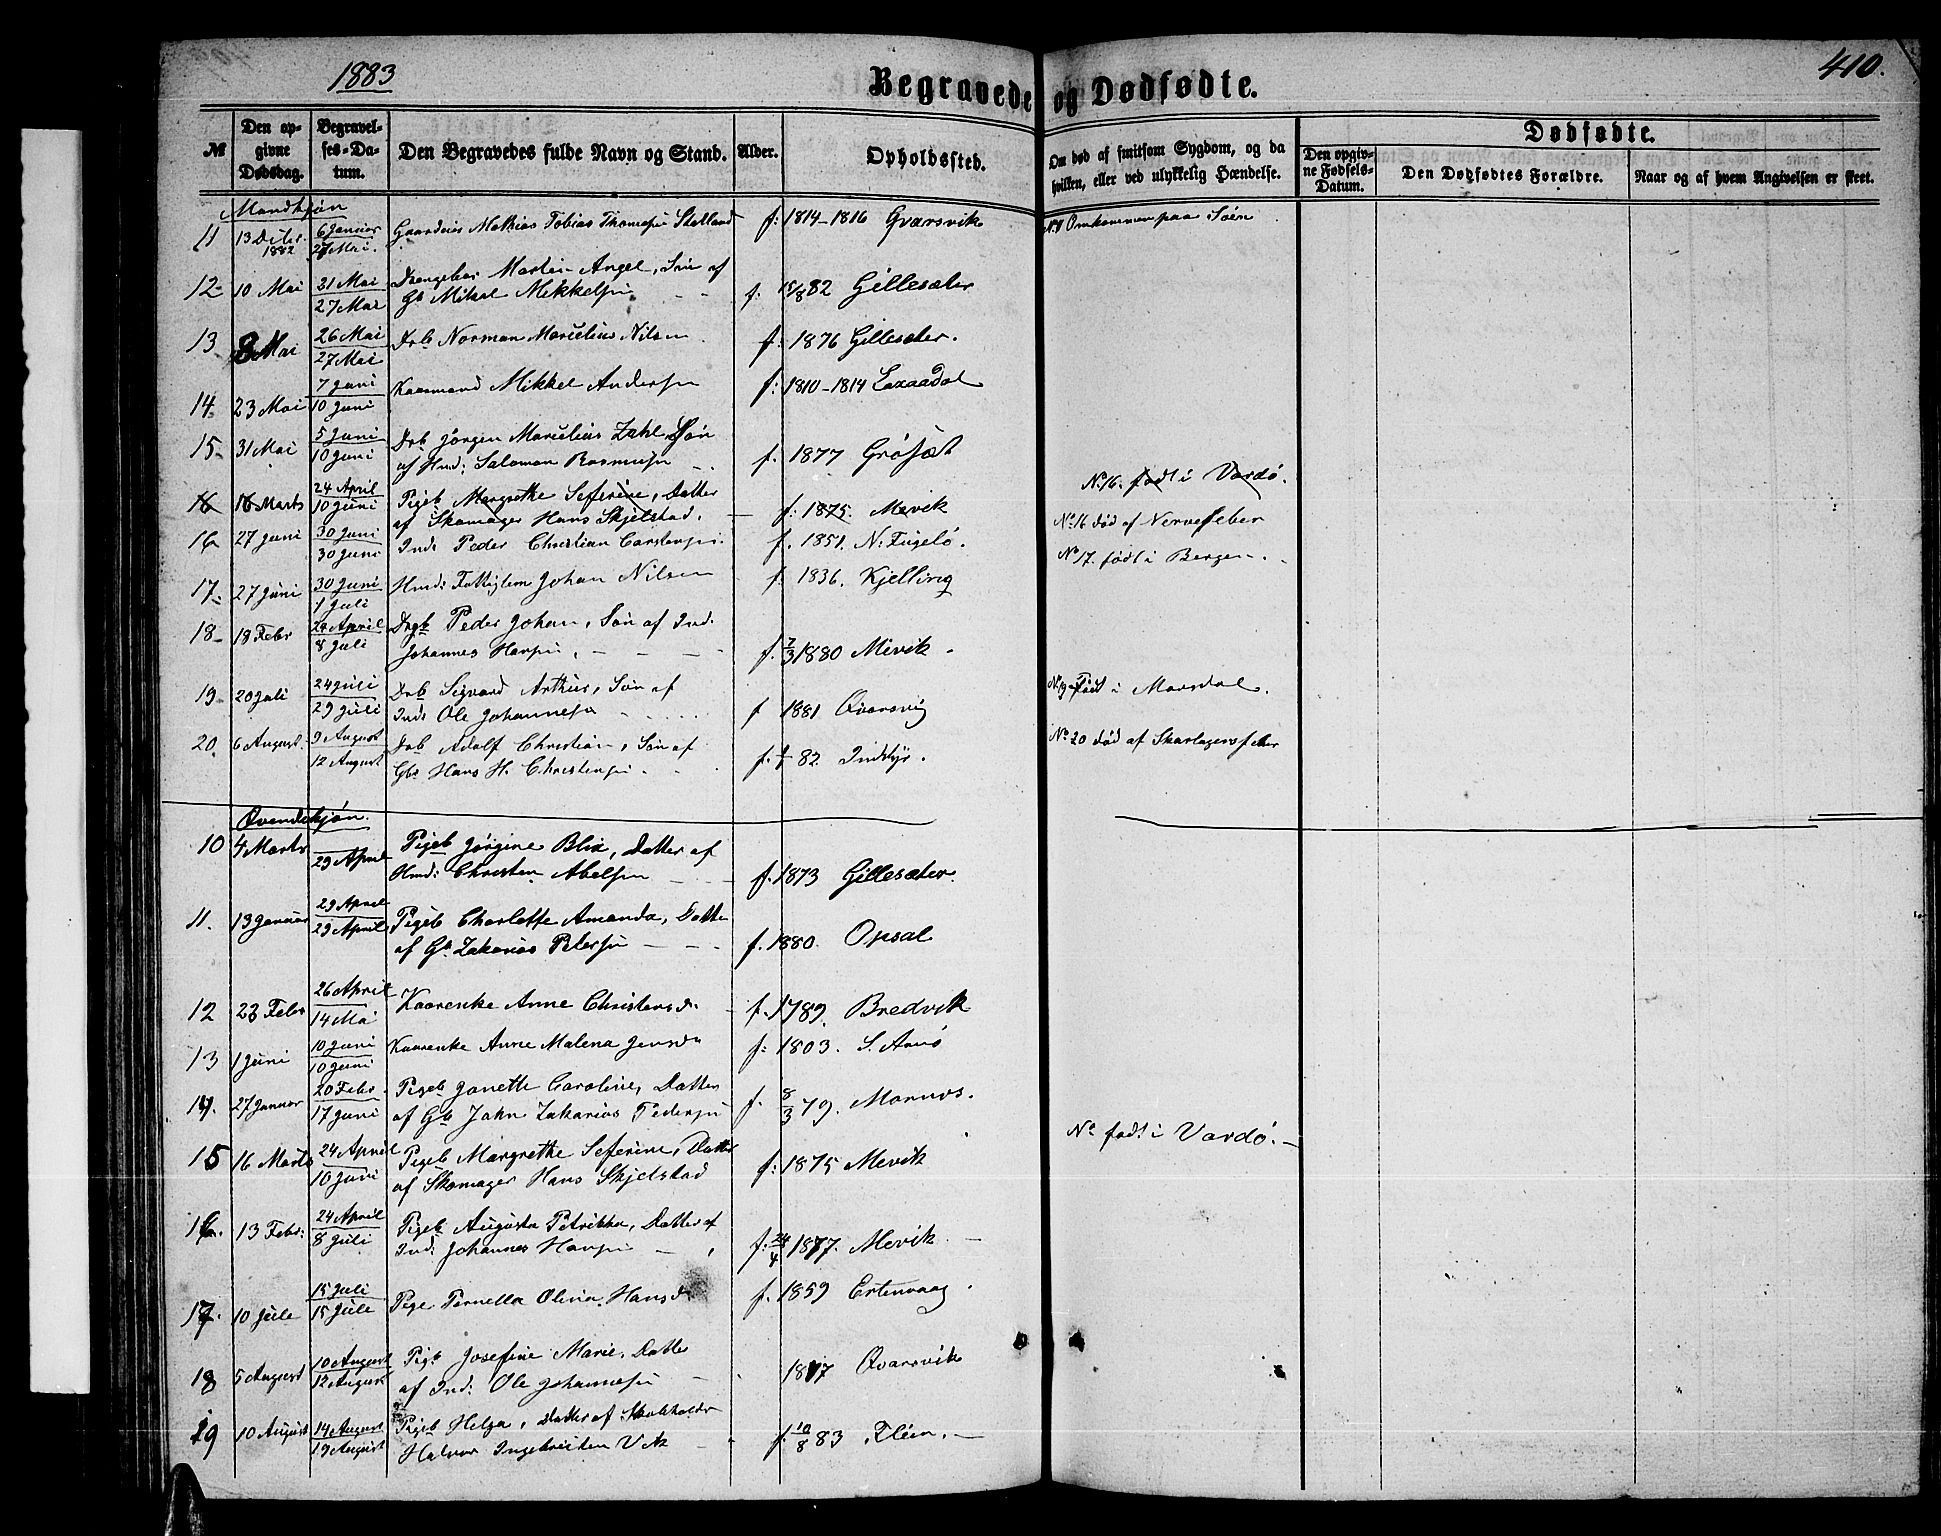 1883
Begravede og Dødfødte.
410.
№
Den opgivne Dødsdag.
Begravelses-Datum.
Den Begravedes fulde Navn og Stand.
Alder.
Opholdssted.
Om død af smitsom Sygdom, og da hvilken, eller ved ulykkelig Hændelse.
Dødfødte.
Den opgivne Fødsels-Datum.
Den Dødfødtes Forældre.
Naar og af hvem Angivelsen er skeet.
Mandkjøn
11 13 Decbr. 1882 6 Januar 27 Mai. Mathias Tobias Thomasen f: 1814-1816 Gværsvik Omkommen paa Søen
12 10 Mai 21 Mai 27 Mai Martin Angel, Søn af
Mikal Mikkelsen f. 15/8 82 Gillesæter
13 3 Mai 26 Mai 27 Mai Drb Norman Marselius Nilsen f. 1876 Gillesæter.
14. 23 Mai 7 Juni 10 Juni Kaarmand Mikkel Andersen f: 1810-1814
15. 31 Mai 5 Juni 10 Juni Drb Jørgen Marselius Zahl, Søn
af Hmd: Salomon Rasmusen f. 1877 Grøfæt
16 16 Marts 24 April 10 Juni Pigeb. Margrethe Seferine, Datter
af Skomager Hans Skjelstad, f: 1875. Mevik
No 16. født i Vardø.
16 27 Juni 30 Juni 30 Juni Ind: Peder Christian Carstensen f. 1851. N. Fugelø.
No 16 død af Nervefeber
17. 27 Juni 30 Juni 1 Juli Hmd: Fattiglem Johan Nilsen f. 1836. Kjelling
No 17. født i Bergen.
18 18 Febr 24 April 8 Juli Drgb Peder Johan, Søn af Ind:
Johannes Hansen f. 2/3 1880 Mevik.
19. 20 Juli 24 Juli 29 Juli Drb Sigvard Arthur, Søn af
Ind: Ole Johannesen f 1881 Qvarsvig
No 19 Født i Morsdal.
20. 6 August. 9 August 12 August Drb Adolf Christian, Søn af
Gbr Hans H. Christensen f. 82 Inddyr.
No 20 død af Skarlagensfeber
Qvendekjøn.
10 4 Marts 29 April Pigeb Jørgine Blix, Datter af
Hmd: Christen Abelsen f. 1873 Gillesæter.
11. 13 Januar 29 April 29 April Pigeb Charlotte Amanda, Datter
af Zakarias Petersen f. 1880. Opsal
12 23 Febr 26 April 14 Mai Kaarenke Anne Christensd. f. 1789. Bredvik
13 1 Juni 10 Juni 10 Juni Kaarenke Anne Malena Jensd f: 1803. S. Arnø
14. 27 Januar 20 Febr. 17 Juni Pigeb Janette Caroline, Datter
af Gb John Zakarias Pedersen f. 8/3 79. Mornes.
15 16 Marts 24 April 10 Juni Pigeb Margrethe Seferine, Datter
af Skomager Hans Skjelstad f: 1875 Mevik
No født i Vardø.
16. 13 Febr: 24 April 8 Juli Pigeb Augusta Petrikka, Datter af
Ind: Johannes Hansen f: 24/4 1877. Mevik
17. 10 Juli 15 Juli 15 Juli Pige Pernella Olina Hansd f. 1859 Ertenvaag
18 5 August 10 August 12 August Pigb Josefine Marie, Datter
af Ind: Ole Johannesen 1877 Qvarsvik
19 10 August 14 August 19 August Pigeb Helga, Datter af Skoleholder
Halvor Ingebrigtsen Vik f. 10/8 83